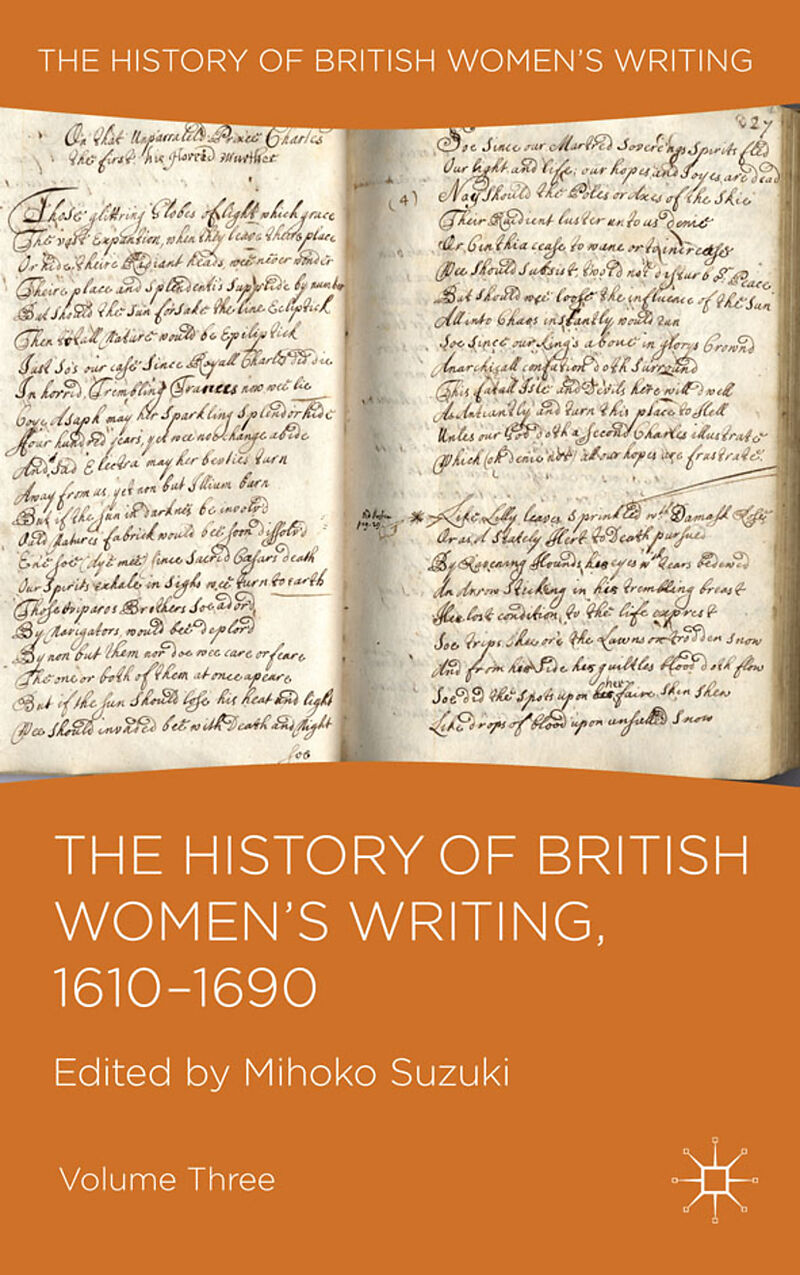 THE HISTORY OF BRITISH WOMEN'S WRITING
On that Unparraleld Prince Charles
the first his Murther
Those glittring Globes of light which grace
The vast Expantion, when they leave theire place
Or hide theire Radiant heads, wee never wonder
Theire place and Splendentis Supplide by number
But should the Sun forsake the line Ecliptick
Then totall Nature would be Epiliptick
Just So's our case Since Royall Charles did die
In horrid, Trembling Trances now wee lie
Coye Asaph may her Sparkling Splendor hide
ffour hundred years, yet wee noe change abide
And Sad Electra may her bevties turn
Away from us, yet non but Illium burn
But if the sun in darknes be involvd
Ould Natures fabrick would bee soon dissolvd
Ene soe dye mee since Sacred Cæsars death
Our Spirits exhale in Sighs wee turn to earth
Those Brothers Soe adord
By Navigators, would bee deplord
By non but them nor doe wee care or feare
The one or both of them at once apeare
But if the sun should lose his heat and light
Wee should invaded bee with Death and Night
Soe
227
Soe Since our Martred Soverengs Spirits fled
Our light, and life; our hopes and Joyes are dead
(4)
Nay should the Poles or Axes of the Skie
Their Raidient luster unto us denie
Or Cinthia cease to wane or to increase
Wee Should subsist twold not disturb or Peace
But should wee loose the influence of the Sun
All into Chaos instantly would run
Soe Since our King's above in glorys Crownd
Anarchicall confution doth Surround
This fatall Isle and Devils here will dwell
As Antiantly and turn this place to Hell
Unles our God doth a Second Charles illustrate
Which (oh denie not) all our hopes are frustrate.
* Like Lilly leaves Sprinkled wth Damask
Or as A Stately Hert to Death pursued
By Ravening Hounds, his eyes wth tears bedewed
An Arrow Sticking in his trembling breast
His lost condition, to the life exprest
Soe trips Shee ore the Lawns on trodden Snow
And from his Side his guiltles blood doth flow
Soe did the Spots upon her faire Skin Shew
Like drops of blood upon unsullied Snow
THE HISTORY OF BRITISH
WOMEN'S WRITING,
1610–1690
Edited by Mihoko Suzuki
Volume Three